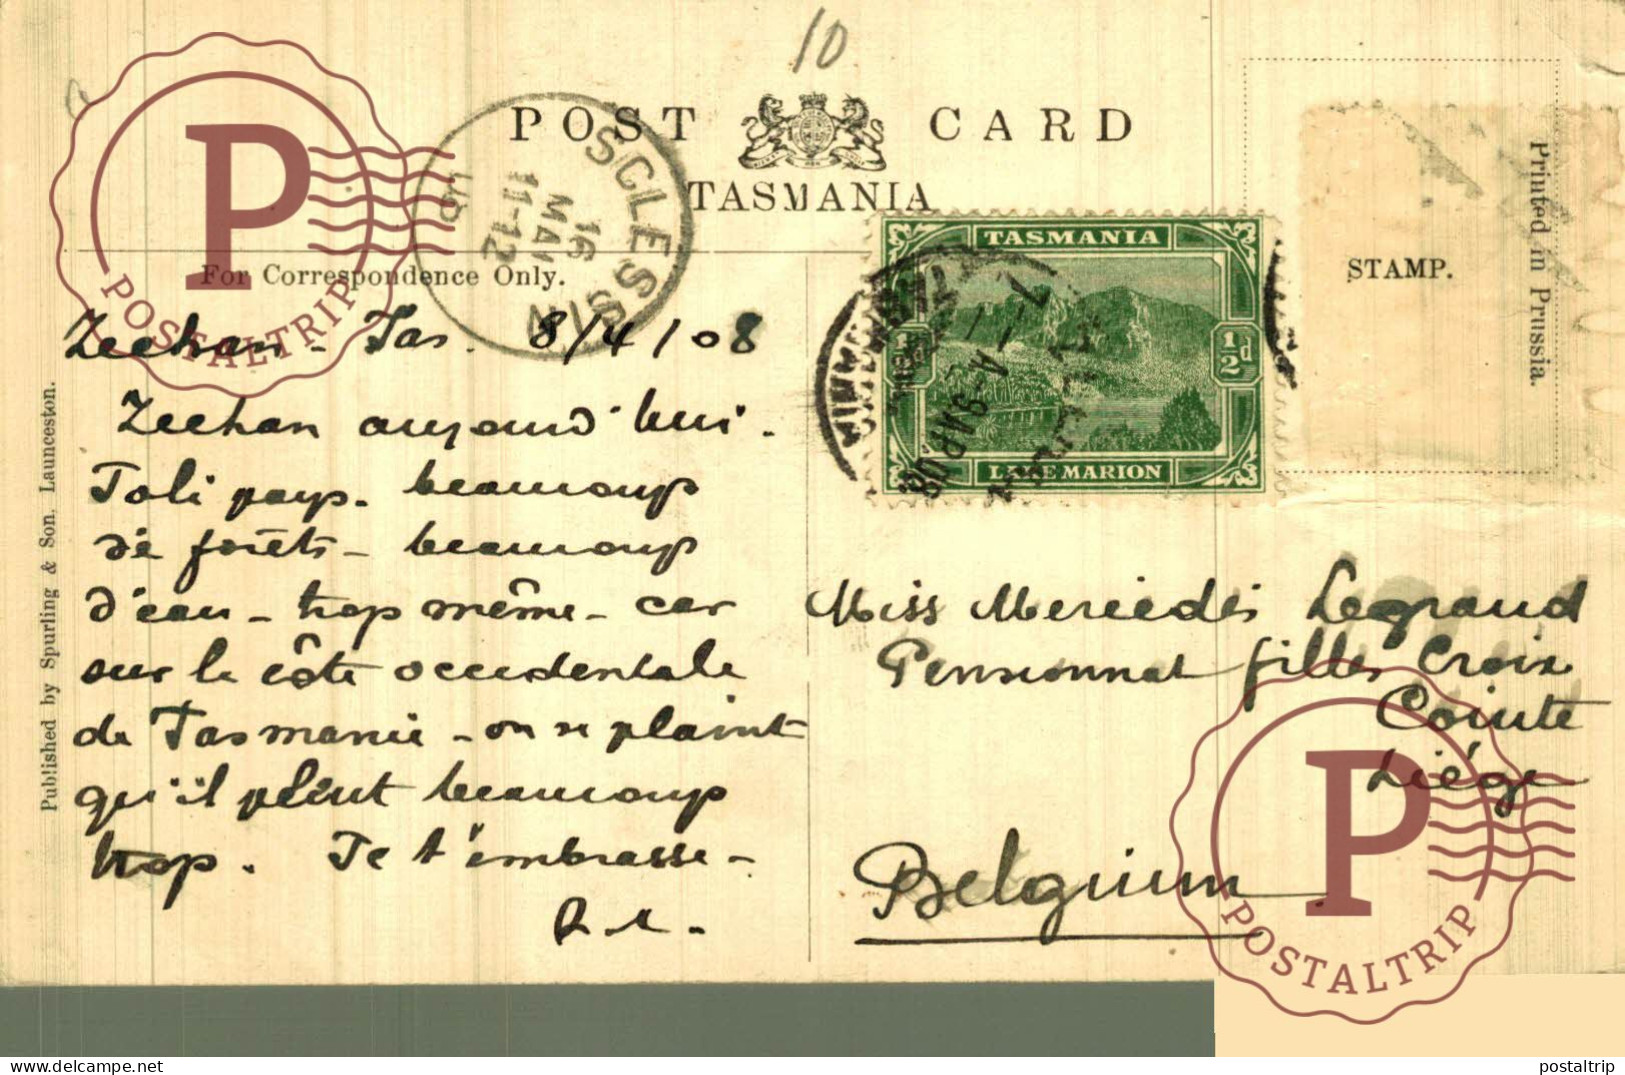 10
POST CARD
TASMANIA
For Correspondence Only.
Zeehan - Tas. 8/4/08
Zeehan aujourd'hui.
Joli pays. beaucoup
de forêts - beaucoup
d'eau - trop même - car
sur la côte occidentale
de Tasmanie - on se plaint
qu'il pleut beaucoup
trop. Je t'embrasse -
Published by Spurling & Son, Launceston.
SCLESSIN
16
MAI
11-12
TASMANIA
½d ½d
LAKE MARION
STAMP.
Printed in Prussia.
Miss Mercedès Legrand
Pensionnat filles Croix
Cointe
Liége
Belgium
P
POSTALTRIP
P
POSTALTRIP
postaltrip